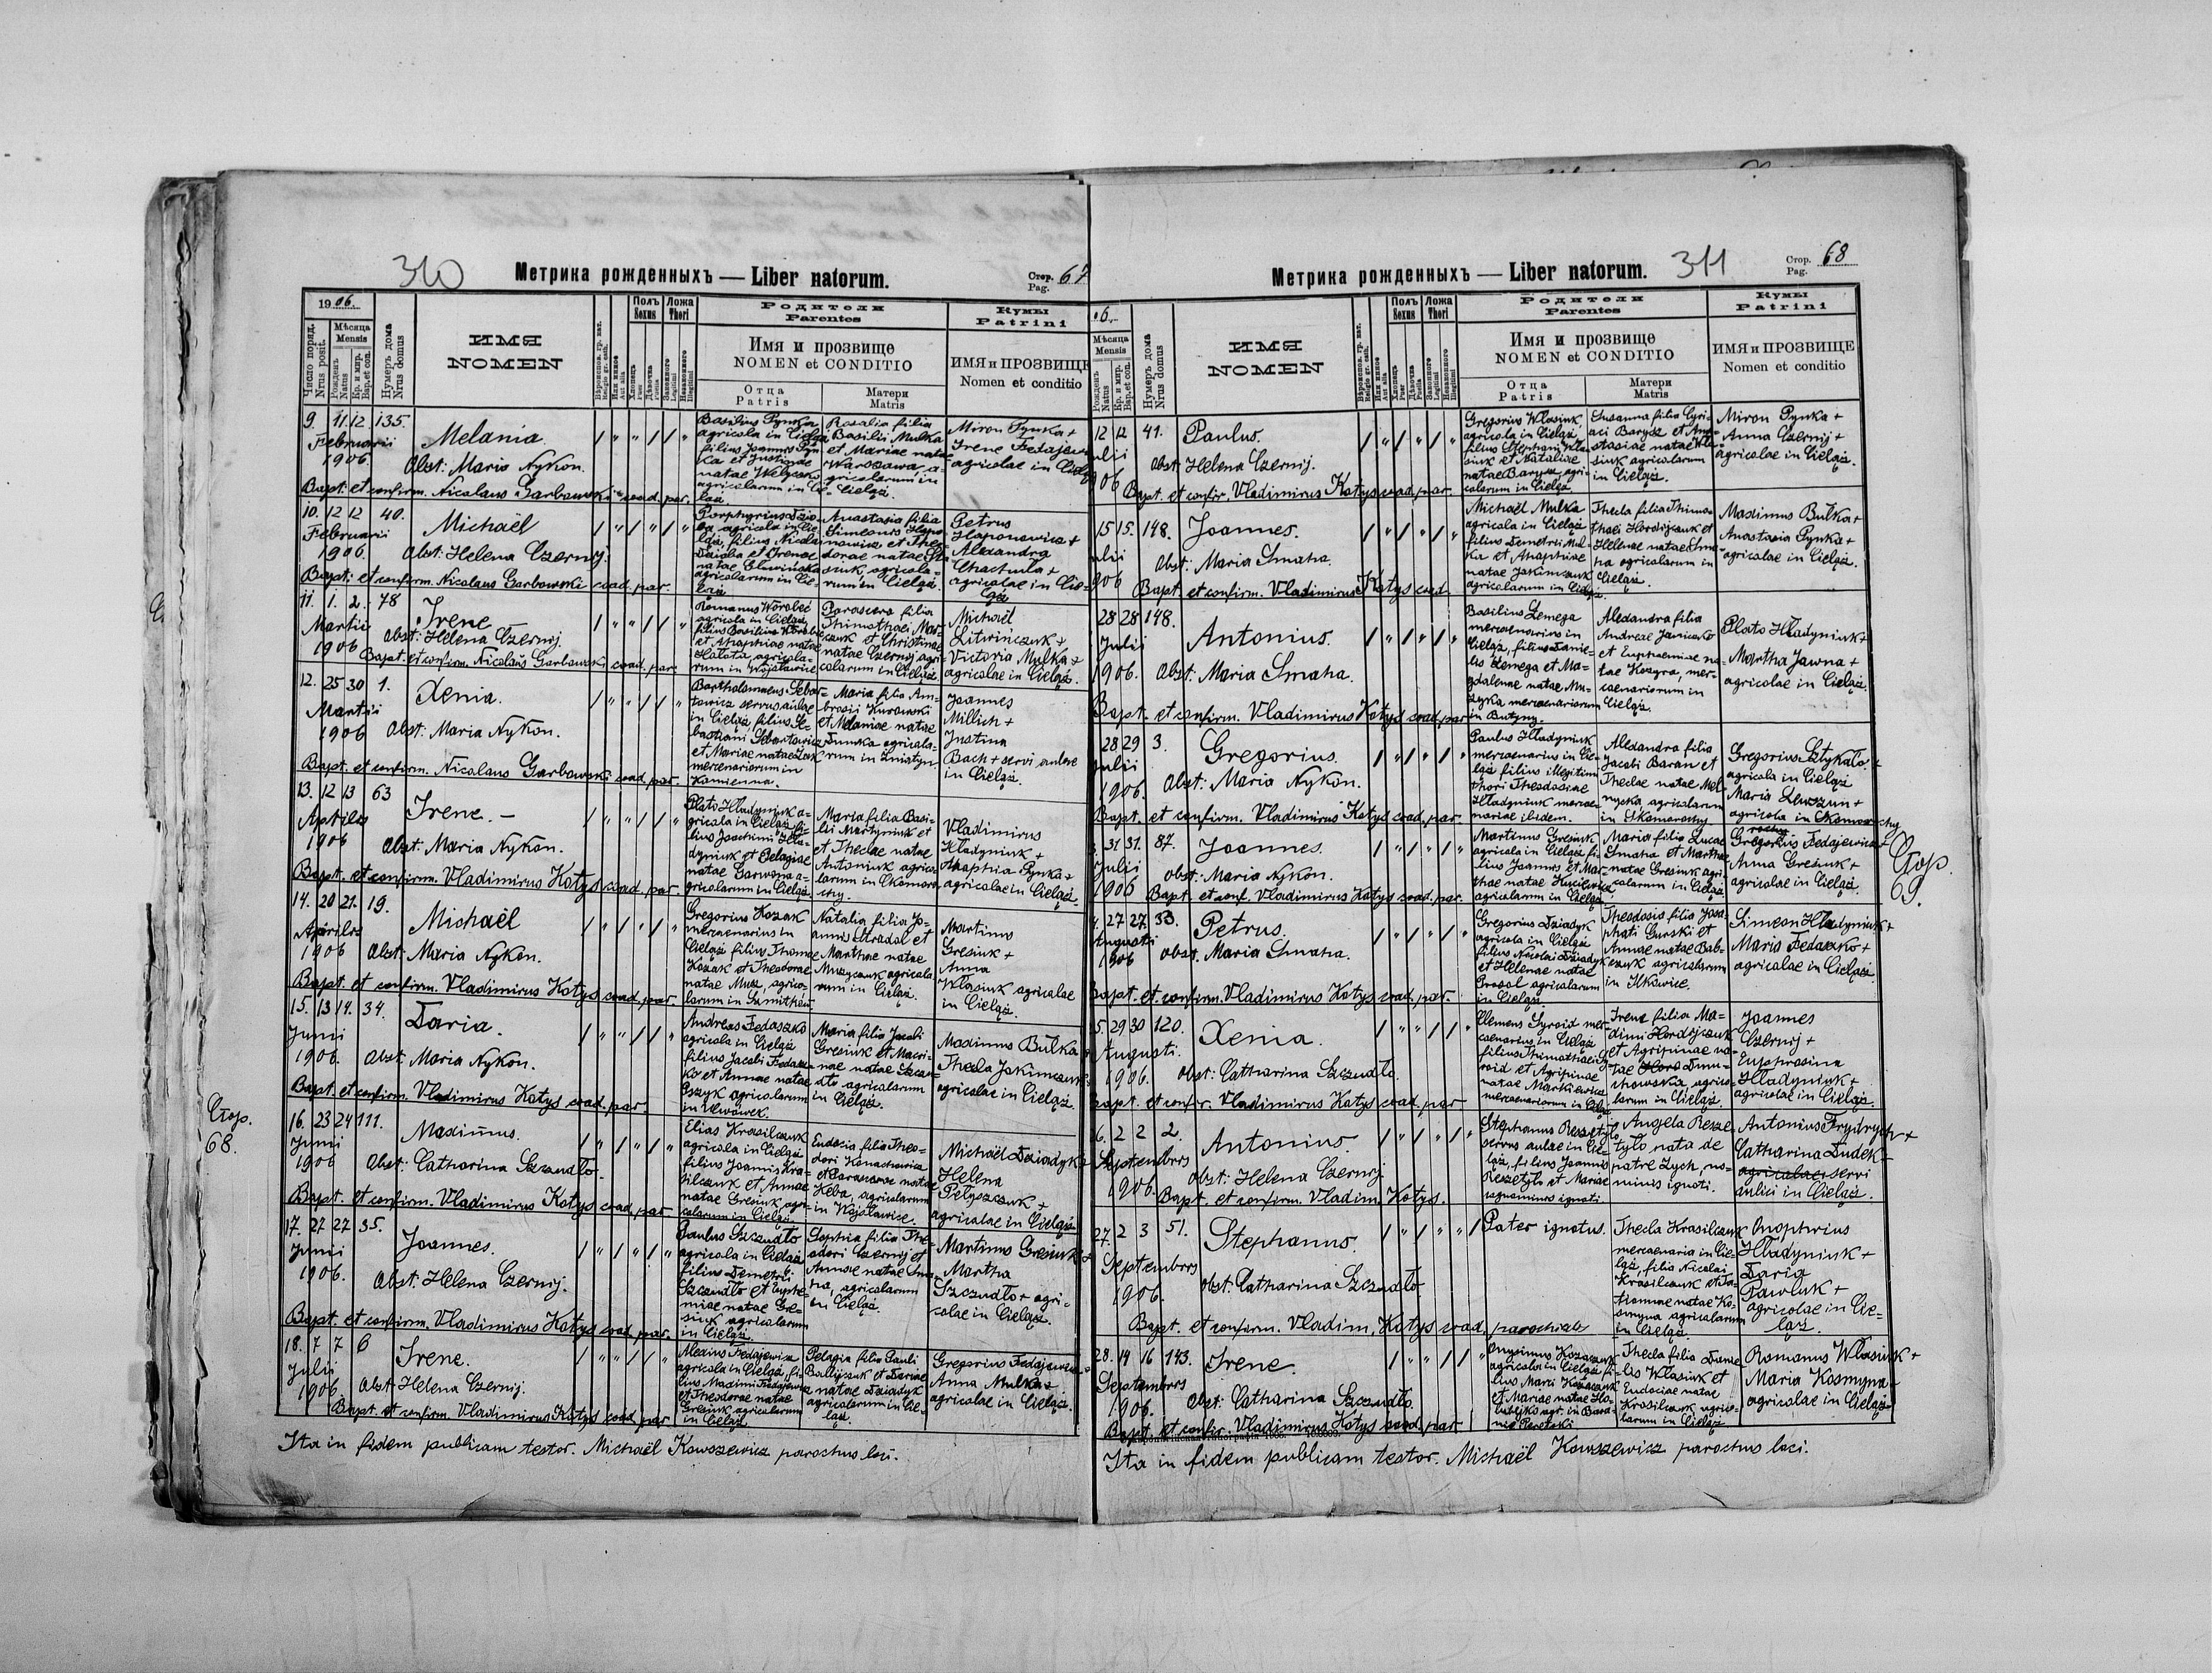 310
Метрика рожденныхъ — Liber natorum.
Стор. Pag. 67
1906.
Число поряд. Nrus posit.
Мѣсяца Mensis
Рожденъ Natus
Кр. и мир. Bap. et con.
Нумеръ дома Nrus domus
ИМЯ
NOMEN
Полъ Sexus
Ложа Thori
Родители
Parentes
Имя и прозвище
NOMEN et CONDITIO
Отца Patris
Матери Matris
Кумы
Patrini
ИМЯ и ПРОЗВИЩЕ
Nomen et conditio
9. 11. 12. 135.
Februarii
1906.
Melania.
Obst: Maria Nykon.
Bapt. et confirm. Nicolaus Garbowski coad. par.
Basilius Pynka
agricola in Cieląż
filius Joannis Pyn-
ka et Justinae
natae
agricolarum in Cie-
ląż.
Rosalia filia
Basilii Mulka
et Mariae natae
Warszawa, a-
gricolarum in
Cieląż.
Miron Pynka +
Irene Fedajew
agricolae in Cieląż
10. 12 12 40.
Februarii
1906.
Michaël
Obst: Helena Czernij.
Bapt. et confirm. Nicolaus Garbowski coad. par.
Porphyrius Dzio-
ba agricola in Cie-
ląż, filius Nicolai
Dzioba et Irenae
natae Eliwińska
agricolarum in Cie-
ląż
Anastasia filia
Simeonis Hapo-
nowicz et Theo-
dorae natae
siuk, agricola-
rum in Cieląż.
Petrus
Haponowicz +
Alexandra
Chachula +
agricolae in Cie-
ląż
11. 1. 2. 78
Martii
1906
Irene
Obst: Helena Czernij.
Bapt. et confirm. Nicolaus Garbowski coad. par.
Romanus Worobec
agricola in Cieląż
filius Basilius Worobec
et Anaphiae natae
Hatata agricola-
rum in Wojsławice
Parasceva filia
Thimothaei Mar-
czuk et Christinae
natae Czernij agri-
colarum in Cieląż
Michaël
Litwińczuk +
Victoria Mulka +
agricolae in Cieląż.
12. 25 30 1.
Martii
1906
Xenia.
Obst: Maria Nykon.
Bapt. et confirm. Nicolaus Garbowski coad. par.
Bartholomaeus Seba-
towicz servus aulae
in Cieląż filius Se-
bastiani Sebastowicz
et Mariae natae Luk
mercenariorum in
Kamienna.
Maria filia Am-
brosii Kurowski
et Melaniae natae
Dumka agricola-
rum in Sniatyn.
Joannes
Millich +
Justina
Bach + servi aulae
in Cieląż
13. 12 13 63
Aprilis
1906
Irene. -
Obst: Maria Nykon.
Bapt. et confirm. Vladimirus Kotys coad. par.
Plato Hładyniuk a-
gricola in Cieląż fi-
lius Joachimi Hła-
dyniuk et Pelagiae
natae Sawosna a-
gricolarum in Cieląż
Maria filia Basi-
lii Martyniuk et
et Theclae natae
Antoniuk agrico-
larum in Skomoro-
chy.
Vladimirus
Hładyniuk +
Anaphia Pynka +
agricolae in Cieląż.
14. 20 21. 19.
Aprilis
1906
Michaël
Obst: Maria Nykon.
Bapt. et confirm. Vladimirus Kotys coad. par.
Gregorius Kozak
mercenarius in
Cieląż filius Thomae
Kozak et Theodorae
natae Musz, agrico-
larum in
Natalia filia Jo-
anni Stradol et
Marthae natae
Muzyczuk agricola-
rum in Cieląż.
Martinus
Gresiuk +
Anna
Własiuk agricolae
in Cieląż.
15. 13 14. 34.
Junii
1906.
Daria.
Obst: Maria Nykon.
Bapt. et confirm. Vladimirus Kotys coad. par.
Andreas Fedaszko
agricola in Cieląż
filius Jacobi Fedasz-
ko et Annae natae
Eszyk agricolarum
in Uwówek.
Maria filia Jacobi
Gresiuk et Macri-
nae natae Szczu-
dło agricolarum
in Cieląż.
Maximus Bulka
Thecla Jakimczuk
agricolae in Cieląż.
Стор.
68.
16. 23 24 111.
Junii
1906
Maximus.
Obst: Catharina Szczudło.
Bapt. et confirm. Vladimirus Kotys coad. par.
Elias Krasilczuk
agricola in Cieląż
filius Joannis Kra-
silczuk et Annae
natae Gresiuk agri-
colarum in Cieląż.
Eudocia filia Theo-
dori Konachowicz
et Parascevae natae
Heba, agricolarum
in Wojsławice.
Michaël Dziadyk +
Helena
Petyszczuk +
agricolae in Cieląż
17. 27 27 35.
Junii
1906.
Joannes.
Obst: Helena Czernij.
Bapt. et confirm. Vladimirus Kotys coad. par.
Paulus Szczudło
agricola in Cieląż
filius Demetrii
Szczudło et Euphe-
miae natae Gre-
siuk agricolarum
in Cieląż.
Sophia filia The-
odori Czernij et
Annae natae Sma-
ha, agricolarum
in Cieląż.
Martinus Gresiuk +
Martha
Szczudło + agri-
colae in Cieląż.
18. 7 7 6
Julii
1906.
Irene.
Obst: Helena Czernij.
Bapt. et confirm. Vladimirus Kotys coad. par.
Alexius Fedajewicz
agricola in Cieląż, fi-
lius Maximi Fedajewicz
et Theodorae natae
Gresiuk agricolarum
in Cieląż.
Pelagia filia Pauli
et Dariae
natae Dziadyk
agricolarum in Cie-
ląż.
Gregorius Fedajewicz
Anna Mulka +
agricolae in Cieląż.
Ita in fidem publicam testor. Michaël Kowszewicz parochus loci.
Метрика рожденныхъ — Liber natorum. 311
Стор. Pag. 68
06.
Мѣсяца Mensis
Рожденъ Natus
Кр. и мир. Bap. et con.
Нумеръ дома Nrus domus
ИМЯ
NOMEN
Полъ Sexus
Ложа Thori
Родители
Parentes
Имя и прозвище
NOMEN et CONDITIO
Отца Patris
Матери Matris
Кумы
Patrini
ИМЯ и ПРОЗВИЩЕ
Nomen et conditio
12 12 41.
ulii
906
Paulus.
Obst: Helena Czernij.
Bapt. et confir. Vladimirus Kotys coad. par.
Gregorius Własiuk
agricola in Cieląż
filius Stephani Wła-
siuk et Nataliae
natae Barysz, agri-
colarum in Cieląż.
Susanna filia Cyri-
aci Barysz et Ana-
stasiae natae Wła-
siuk agricolarum
in Cieląż.
Miron Pynka +
Anna Czernij +
agricolae in Cieląż.
15 15. 148.
ulii
906
Joannes.
Obst: Maria Smaha.
Bapt. et confirm. Vladimirus Kotys coad.
Michaël Mulka
agricola in Cieląż
filius Demetrii Mul-
ka et Anaphiae
natae Jakimczuk
agricolarum in Cieląż
Thecla filia Thimo-
thaei Hordijczuk et
Helenae natae Sma-
ha agricolarum in
Cieląż.
Maximus Bulka +
Anastasia Pynka +
agricolae in Cieląż.
28 28 148.
Julii
1906.
Antonius.
Obst: Maria Smaha.
Bapt. et confirm. Vladimirus Kotys coad. par
Basilius Lemega
mercenarius in
Cieląż, filius Danie-
lis Lemega et Ma-
gdalenae natae Mu-
zyka mercenariorum
in Butyny.
Alexandra filia
Andreae Janiszko
et Euphemiae na-
tae Kozyra, mer-
cenariorum in
Cieląż.
Plato Hładyniuk +
Martha Jawna +
agricolae in Cieląż.
28 29 3.
Julii
1906.
Gregorius.
Obst: Maria Nykon.
Bapt. et confirm. Vladimirus Kotys coad. par.
Paulus Hładyniuk
mercenarius in Cie-
ląż filius illegitimi
thori Theodosiae
Hładyniuk merce-
nariae ibidem.
Alexandra filia
Jacobi Baran et
Theclae natae Mel-
nyczka, agricolarum
in Skomorochy.
Gregorius Sztykało +
agricola in Cieląż
Maria Lewszun +
agricola in Skomorochy
31 31. 87.
Julii
1906
Joannes.
Obst: Maria Nykon.
Bapt. et conf. Vladimirus Kotys coad. par.
Martinus Gresiuk
agricola in Cieląż fi-
lius Joannis et Mar-
thae natae
agricolarum in Cieląż
Maria filia Lucae
Smaha et Marthae
natae Gresiuk agri-
colarum in Cieląż
Gregorius Fedajewicz +
Anna Gresiuk +
agricolae in Cieląż.
Стор.
69.
27 27. 33.
Augusti
1906
Petrus.
Obst. Maria Smaha.
Bapt. et confirm. Vladimirus Kotys coad. par.
Gregorius Dziadyk
agricola in Cieląż
filius Nicolai Dziadyk
et Helenae natae
Prosol agricolarum
in Cieląż.
Theodosia filia Josa-
phati Gurski et
Annae natae Bab-
czuk agricolarum
in Ilkowice.
Simeon Hładyniuk +
Maria Fedaszko +
agricolae in Cieląż.
5. 29 30 120.
Augusti.
1906.
Xenia.
Obst: Catharina Szczudło.
Bapt. et confir. Vladimirus Kotys coad. par
Clemens Syroid mer-
cenarius in Cieląż
filius Thimothaei Sy-
roid et Agripinae
natae Markiewicz
mercenariorum in Cieląż
Irene filia Ma-
ximi Hordijczuk
et Agripinae na-
tae Dmu-
chowska, agrico-
larum in Cieląż.
Joannes
Czernij +
Euphrosina
Hładyniuk +
agricolae in Cieląż.
6. 2 2 2.
Septembris
1906.
Antonius.
Obst: Helena Czernij.
Bapt. et confirm. Vladim. Kotys.
Stephanus Reszetyło
servus aulae in Cie-
ląż, filius Joannis
Reszetyło et Mariae
cognominis ignoti.
Angela Resze-
tyło, nata de
patre Zych, no-
minis ignoti.
Antonius Frydrych +
Catharina Dudek -
agricolae servi
aulici in Cieląż.
27. 2 3 51.
Septembris
1906.
Stephanus.
Obst: Catharina Szczudło
Bapt. et confirm. Vladim. Kotys coad. parochialis
Pater ignotus.
Thecla Krasilczuk
mercenaria in Cie-
ląż, filia Nicolai
Krasilczuk et Ta-
tiannae natae Ko-
smyna agricolarum
in Cieląż.
Onophrius
Hładyniuk +
Daria
Pawluk +
agricolae in Cie-
ląż.
28. 14 16 143.
Septembris
1906.
Irene
Obst: Catharina Szczudło.
Bapt. et confir. Vladimirus Kotys coad. par
Onysimus Kozaczuk
agricola in Cieląż fi-
lius Marci Kozaczuk
et Mariae natae
agr. in Bara-
nie Peretoki
Thecla filia Danie-
lis Własiuk et
Eudociae natae
Krasilczuk agrico-
larum in Cieląż
Romanus Własiuk +
Maria Kosmyna -
agricolae in Cieląż
Ita in fidem publicam testor. Michaël Kowszewicz parochus loci.